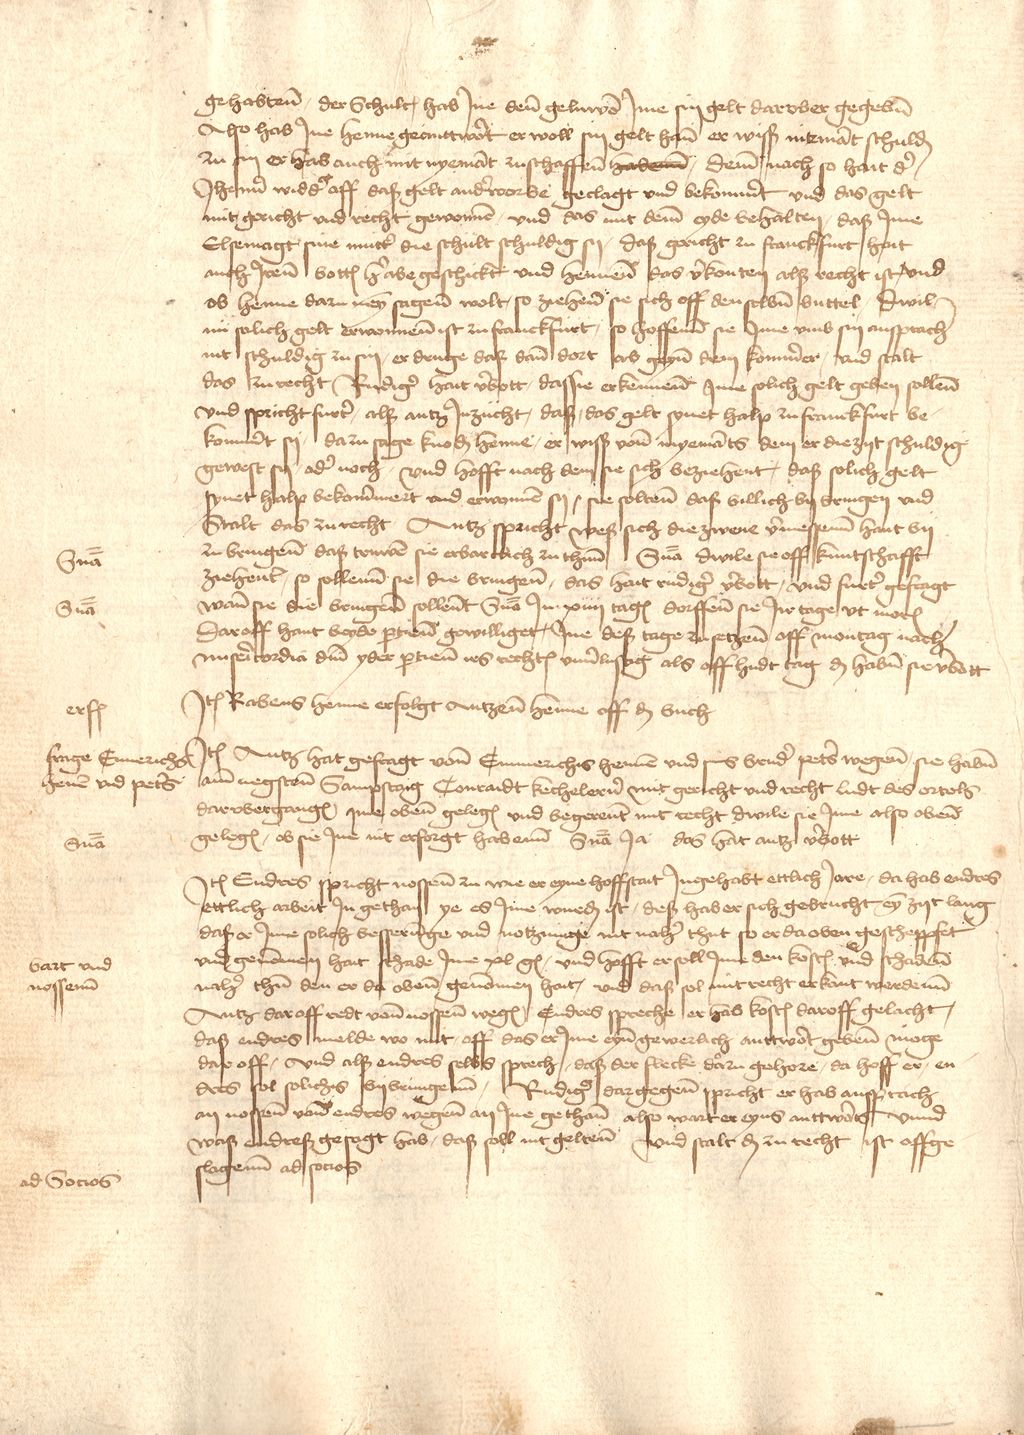 gehabten / der Schult / hab Ine den geluwen Ime sin gelt darober gegeben
Also hab Ine henne geanttwort er woll sin gelt han er wiß niemant schuld
zu sin er hab auch mit nyemant zuschaffen haben / dem nach so hait der
Ihenne widder off daß gelt anderworbe geclagt und bekommert und das gelt
mit gericht und recht gewonnen / und das mit dem eyde behalten / daß Ime
Elsemagt sine mutter die schult schuldig sy / daß gericht zu franckfurt hait
auch Iren botten herabe geschickt und hennen das verkonten alß recht ist / und
ob henne darzu neyn sagen wolt / so ziehen sie sich off denselben buttel / Dwil
nu solich gelt erwonnen ist zu franckfurt / so hoffenn sie Ime umb sin ansprach
nit schuldig zu sin / er brenge daß dan dort abe gegen dem kommerer / und stalt
das zu recht / Rudiger hait verbott / daß sie erkennen Ime solich gelt geben sollen
und spricht furter alß antz Inzucht / daß / das gelt synet halp zu franckfurt be-
kommert sy / dar zu sage knod henne / er wiß von nyemants dem er die zyt schuldig
gewest sy / ader noch / und hofft nach dem sie sich beziehent / daß solich gelt
synet halp bekommert und erwonnen sy / sie solten daß billich bybringen und
stalt das zu recht / Antz spricht weß sich die zwene vermessenn hant by
zu bringen daß truwen sie erbarlich zu thun / Sniā dwile sie off kuntschafft
Sniā
ziehent / so sollenn sie die bringen / das hait rudiger verbott / und furter gefragt
wan sie die bringen sollent Sniā In xiiii tagen dorffen sie Ir tage ut moris
Sniā
Daroff hant beyde partien gewilliget / Ine deß tage zu setzen off montag nach
misericordia dni yder partien irs rechten unverlustig als off hudt tag das haben sie verbott
erff
Item Rabens henne erfolgt Antzen henne off das buch
frage Emerichs
henen und peters
Item Antz hat gefragt von Emmerichs hennen und sins bruder peters wegen / sie haben
am negsten Sampstag Conraidt kecheler mit gericht und recht ludt des ortels
darober gangen / Ime oben gelegen und begerent mit recht dwile sie Ime also oben
gelegen / ob sie Ine nit erfolgt habenn Sniā Ja das hat antz verbott
Sniā
Item Endres spricht nossen zu wie er eyne hoffstait Ingehabt ettlich Jare / da hab endres
ettlich arbeit In gethan ye es Ime worden ist / deß hab er sich gebrucht eyn zyt lang
daß er Ime solich besseringe und notzunge nit naher thut so er da oben gescheppfet
bart und
nossenn
und genomen hait schade Ime xl gl / und hofft er soll Ime den kosten und schaden
naher thun den er da oben genommen hait / und daß sol mit recht erkant werdenn
Antz daroff redt von nossen wegen / Endres spreche er hab kosten daroff gelacht /
daß endres melde wo mit / off das er Ime eyn gewerlich antwort geben moge
dar off / Und alß endres selbs sprech / daß der flecke darin gehore / da hoff er / en
dres sol solichs bybringenn / Rudiger dargegen spricht er hab ansprach
an nossen von endres wegen an Ine gethan also wart er eyns antwort und
waß endreß gesagt hab / daß soll nit gelten / Und stalt das zu recht ist offge
slagenn ad socios
ad Socios